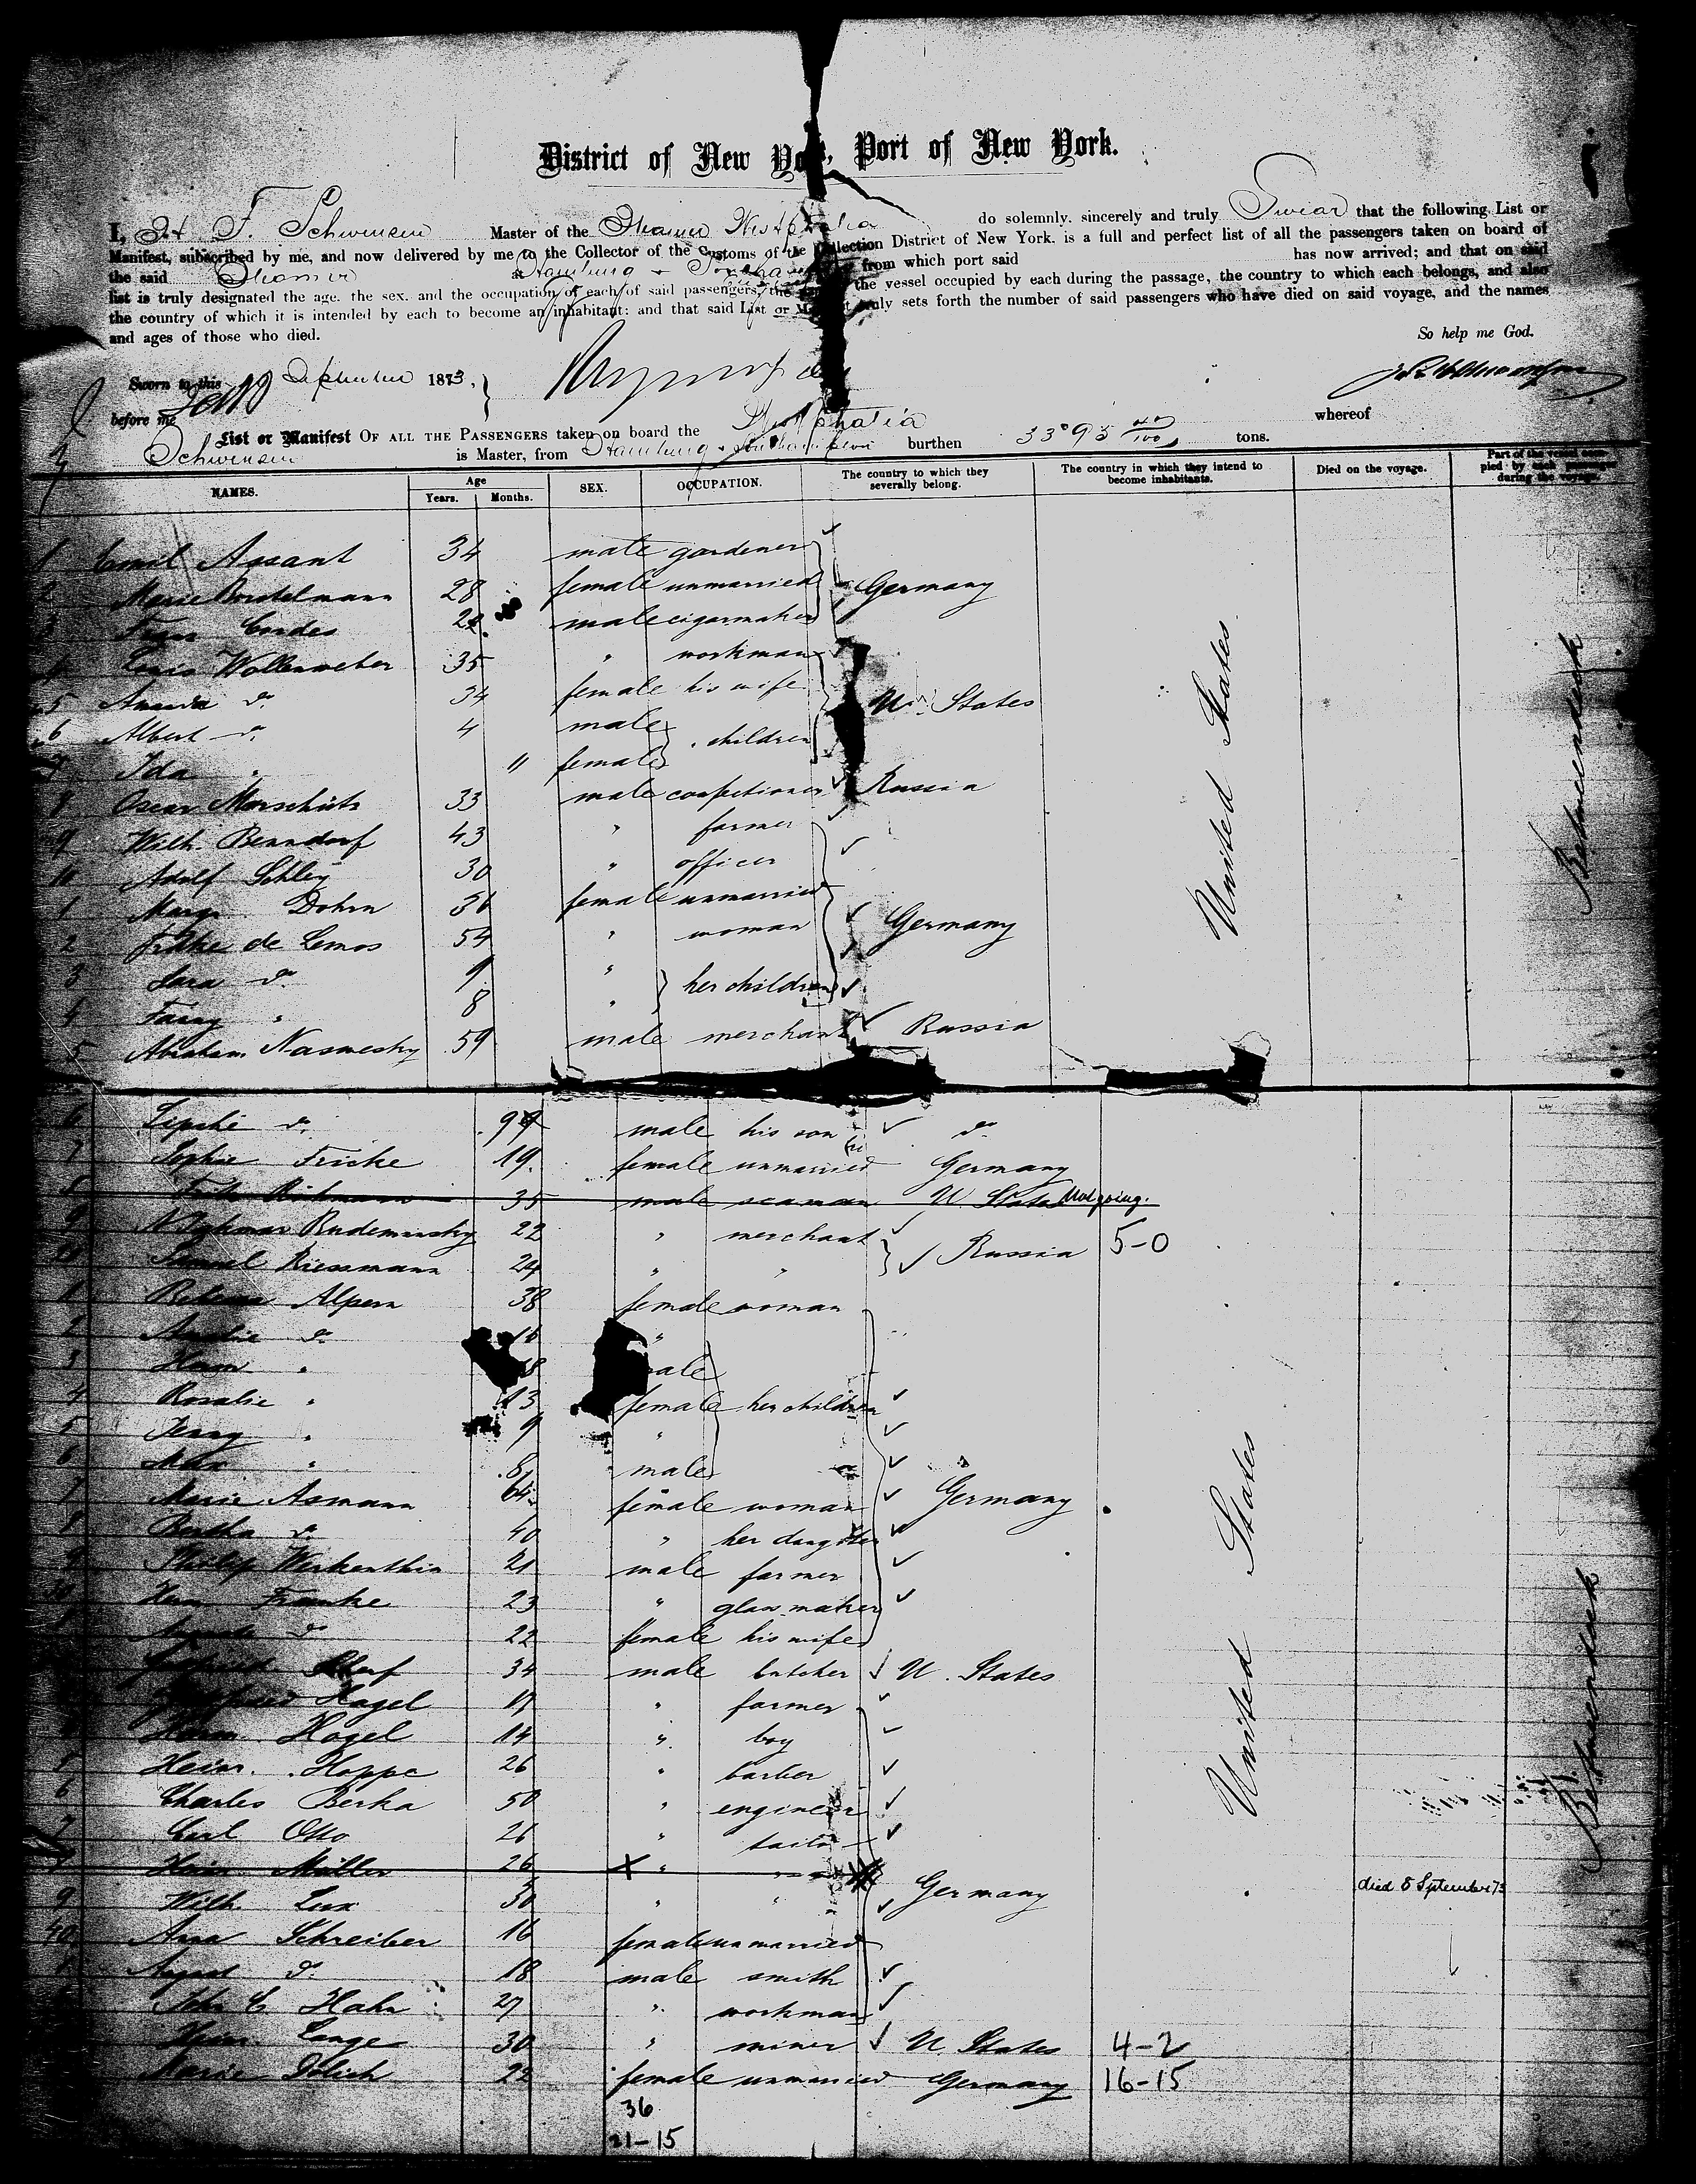 District of New York, Port of New York.
I, H F. Schwensen Master of the Steamer Westphalia do solemnly, sincerely and truly Swear that the following List or
Manifest, subscribed by me, and now delivered by me to the Collector of the Customs of the Collection District of New York. is a full and perfect list of all the passengers taken on board of
the said Steamer at Hamburg from which port said has now arrived; and that on said
list is truly designated the age. the sex. and the occupation of each of said passengers, the the vessel occupied by each during the passage, the country to which each belongs, and also
the country of which it is intended by each to become an inhabitant: and that said List or truly sets forth the number of said passengers who have died on said voyage, and the names
and ages of those who died.
So help me God.
Sworn to this September 1873,
before me
List or Manifest OF ALL THE PASSENGERS taken on board the Westphalia whereof
Schwensen is Master, from Hamburg & Southampton burthen tons.
NAMES. Age Years. Months. SEX. OCCUPATION. The country to which they severally belong. The country in which they intend to become inhabitants. Died on the voyage. Part of the vessel occupied by each passenger during the voyage.
1 Emil Assant 34 male gardener
2 Marie 28 female unmarried Germany
3 Cordes male cigarmaker
4 Louis Wollenweber 35 " workman
5 do. 34 female his wife U. States
6 Albert do. 4 male children
7 Ida " 11 female
8 Oscar Marschütz 33 male confectioner Russia
9 Wilh. Benndorf 43 " farmer
10 Adolf Schley 30 " officer
1 Marg. Dohrn female unmarried
2 de Lemos 54 " woman Germany
3 Sara do. 9 " her children
4 Fanny " 8 "
5 Abraham 59 male merchant Russia
United States
Betweendeck
6 do. male his son do.
7 Sophie Fricke 19. female unmarried Germany
8 35 male seaman U. States Not going.
9 22 " merchant Russia 5-0
20 Samuel Riessmann 24 " "
1 Alpern 38 female woman
2 do. 16 "
3 " male
4 Rosalie " 13 female her children
5 Jenny " 9 "
6 Max " 8 male
7 Marie Asmann 64 female woman Germany
8 Bertha do. 40 " her daughter
9 Philip Werkenthin 21 male farmer
30 Franke 23 " glass maker
1 do. 22 female his wife
34 male butcher U. States
Hagel 17 " farmer
4 Herm. Hagel 14 " boy
5 Heinr. Hoppe 26 " barber
6 Charles Berka 50 " engineer
7 Carl Otto 26 " tailor
8 Müller 26 x " " died 5 September 73
9 Wilh. 30 " " Germany
40 Anna Schreiber 16 female unmarried
1 August do. 18 male smith
John C Hahn 27 " workman
Lange 30 " miner U. States 4-2
Marie 22 female unmarried Germany 16-15
36
21-15
United States
Betweendeck